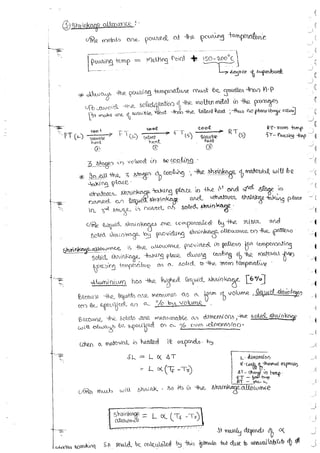 ③ Shrinkage allowance :-
The metals are poured at the pouring temperature
Pouring temp = Melting Point + 150-200°C
Degree of superheat
Always the pouring temperature must be greater than M.P
To avoid the solidification of the molten metal in the passages
RT - room temp
FT - Freezing temp
cool cool cool
PT (L) → FT (L) → FT (S) → RT (S)
① ② ③
3 stages involved in cooling
In all the 3 stages of cooling, the shrinkage of material will be
taking place
whatever shrinkage taking place in the 1st and 2nd stage is
named as liquid shrinkage and whatever shrinkage taking place
in 3rd stage is named as solid shrinkage
The liquid shrinkages are compensated by the riser and
solid shrinkage by providing shrinkage allowance on the pattern
Shrinkage allowance is the allowance provided in pattern for compensating
solid shrinkage taking place during cooling of the material from
freezing temperature as a solid to the room temperature
Aluminium has the highest liquid shrinkage [6%]
Because the liquids are measured as a form of volume, liquid shrinkage
can be specified as a % by volume
Because the solids are measurable as dimensions, the solid shrinkage
will always be specified on a % dimensions
when a material is heated it expands by
δL = L α ΔT
= L α (Tf - Tr)
L - dimension
ΔT - change in temp
This much will shrink. So its is the shrinkage allowance
shrinkage allowance = L α (Tf - Tr)
It mainly depends of α
should be calculated by this formula but due to unavailability of α